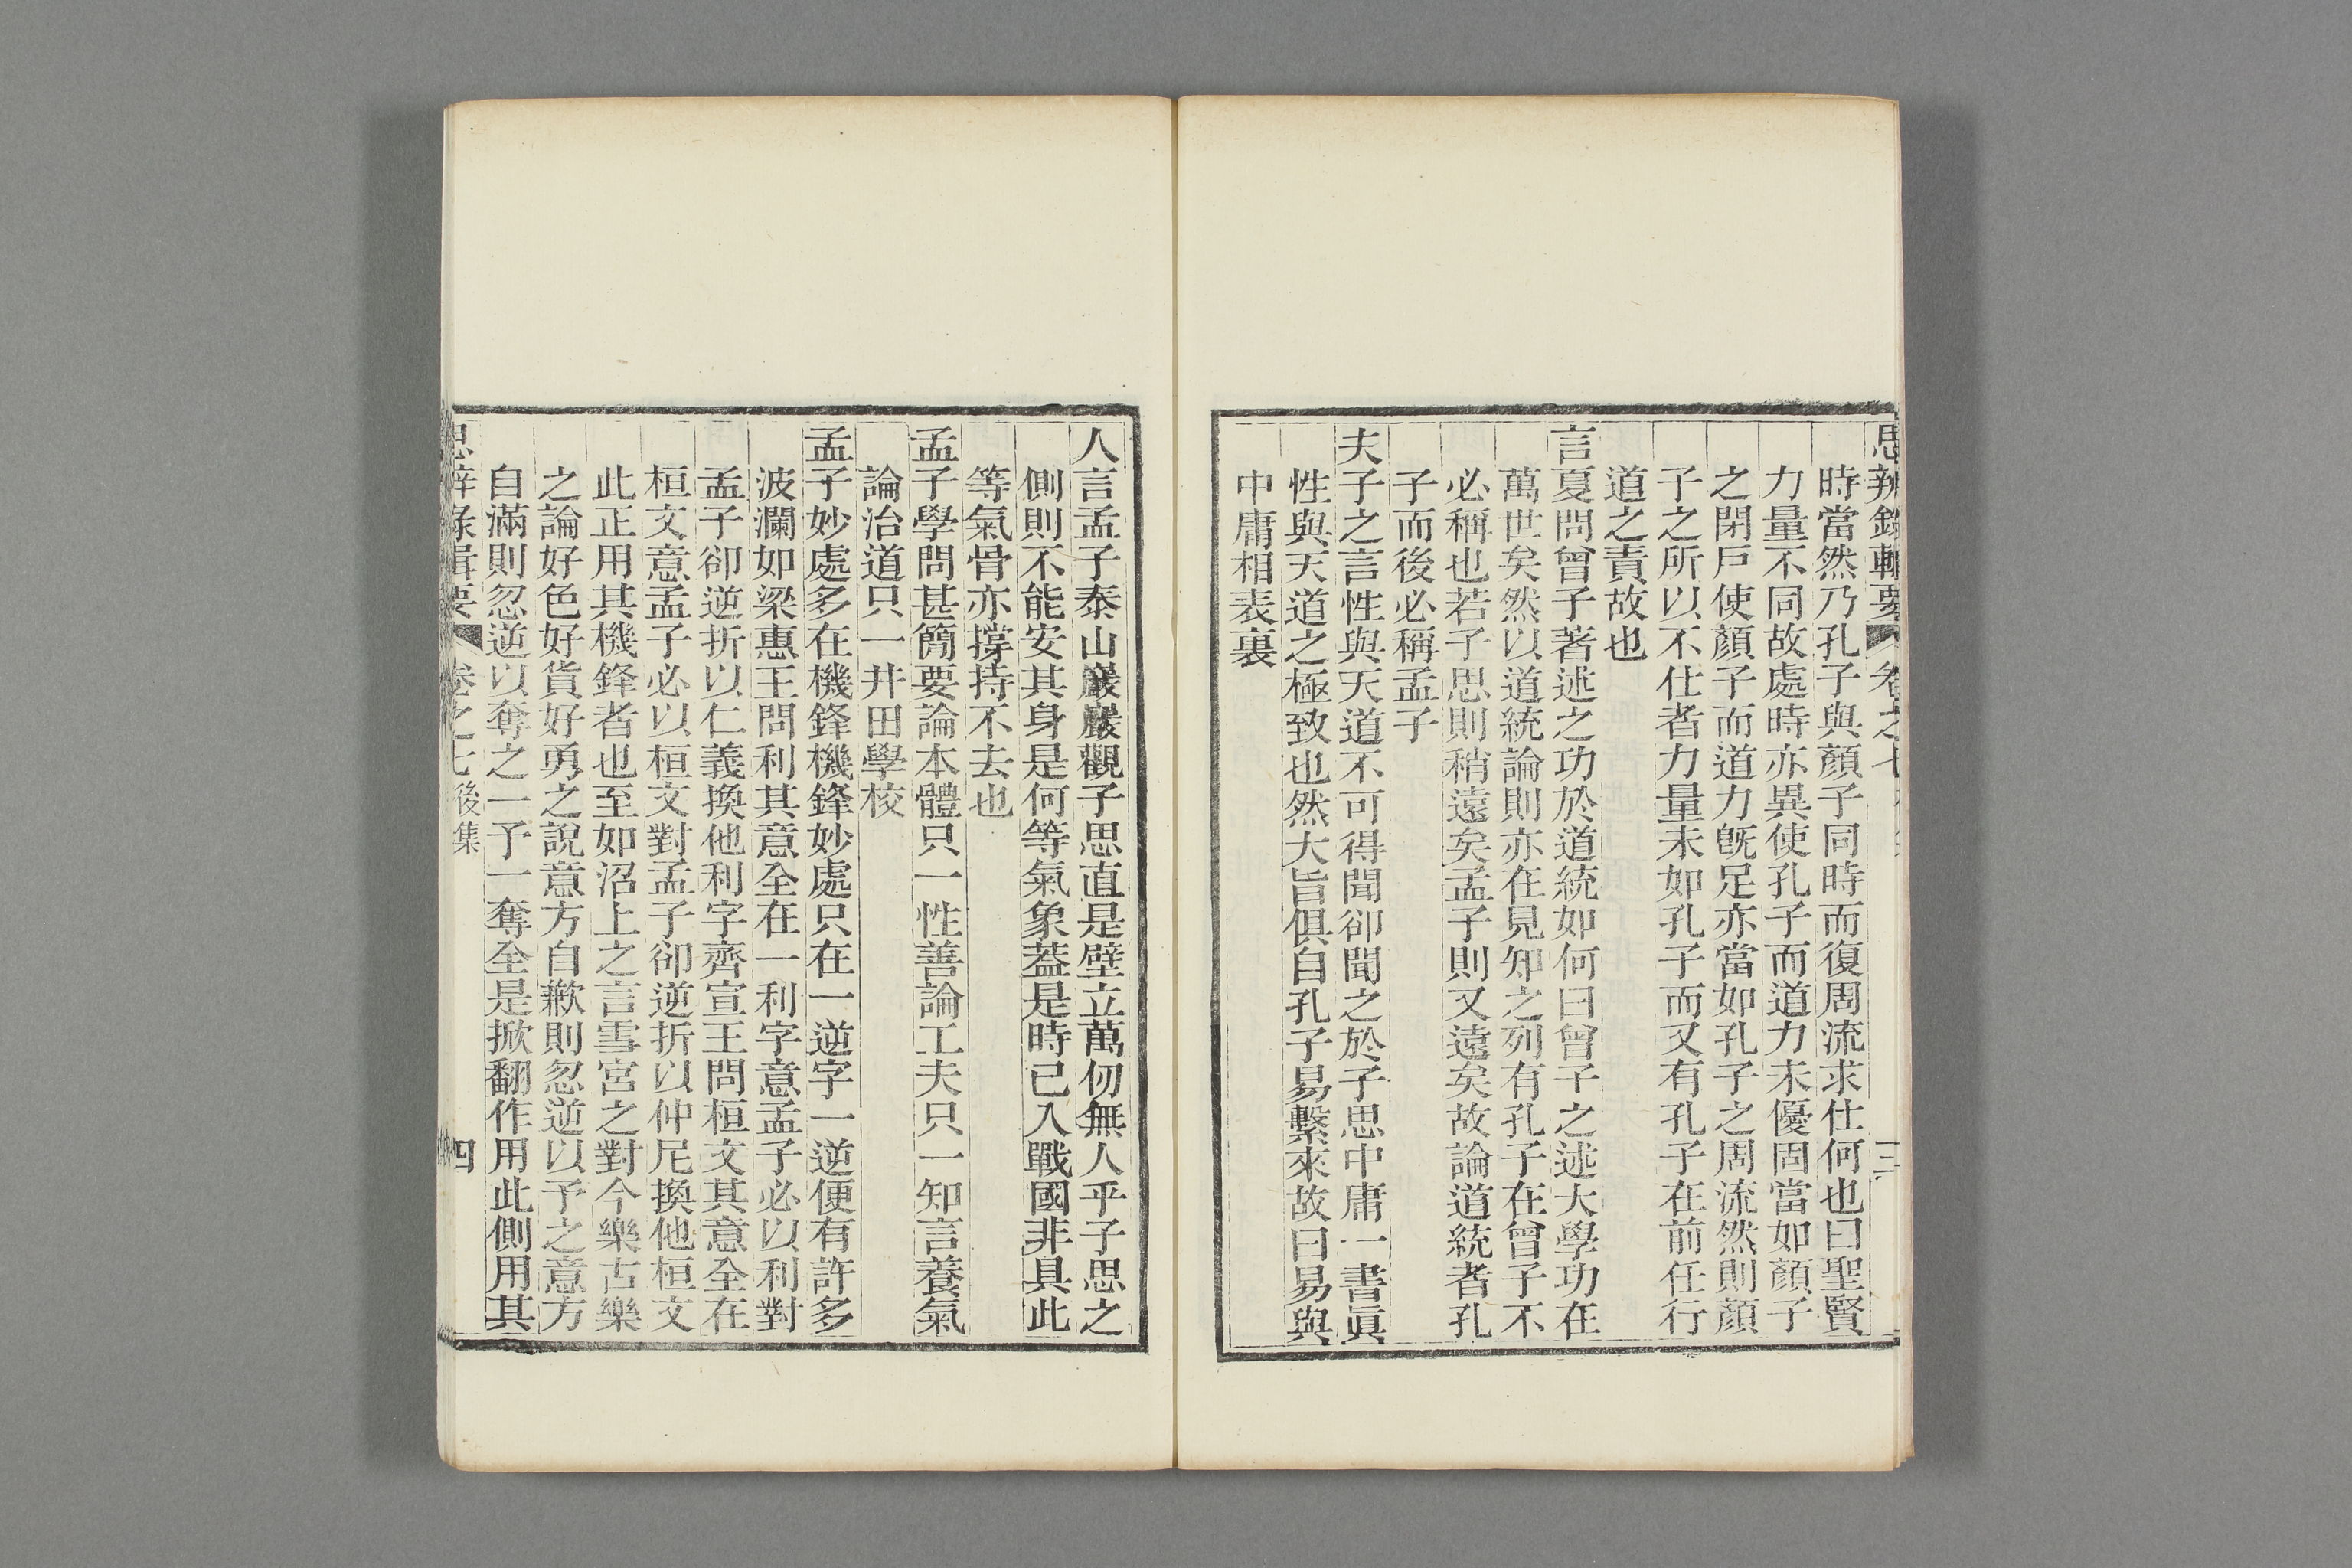 思辨錄輯要 卷之七 三
時當然乃孔子與顏子同時而復周流求仕何也曰聖賢
力量不同故處時亦異使孔子而道力未優固當如顏子
之閉戸使顏子而道力既足亦當如孔子之周流然則顏
子之所以不仕者力量未如孔子而又有孔子在前任行
道之責故也
言夏問曾子著述之功於道統如何曰曾子之述大學功在
萬世矣然以道統論則亦在見知之列有孔子在曾子不
必稱也若子思則稍遠矣孟子則又遠矣故論道統者孔
子而後必稱孟子
夫子之言性與天道不可得聞卻聞之於子思中庸一書眞
性與天道之極致也然大旨俱自孔子易繫來故曰易與
中庸相表裏
人言孟子泰山巖巖觀子思直是壁立萬仞無人乎子思之
側則不能安其身是何等氣象蓋是時已入戰國非具此
等氣骨亦撐持不去也
孟子學問甚簡要論本體只一性善論工夫只一知言養氣
論治道只一井田學校
孟子妙處多在機鋒機鋒妙處只在一逆字一逆便有許多
波瀾如梁惠王問利其意全在一利字意孟子必以利對
孟子卻逆折以仁義換他利字齊宣王問桓文其意全在
桓文意孟子必以桓文對孟子卻逆折以仲尼換他桓文
此正用其機鋒者也至如沼上之言雪宮之對今樂古樂
之論好色好貨好勇之說意方自歉則忽逆以予之意方
自滿則忽逆以奪之一予一奪全是掀翻作用此側用其
思辨錄輯要 卷之七後集 四